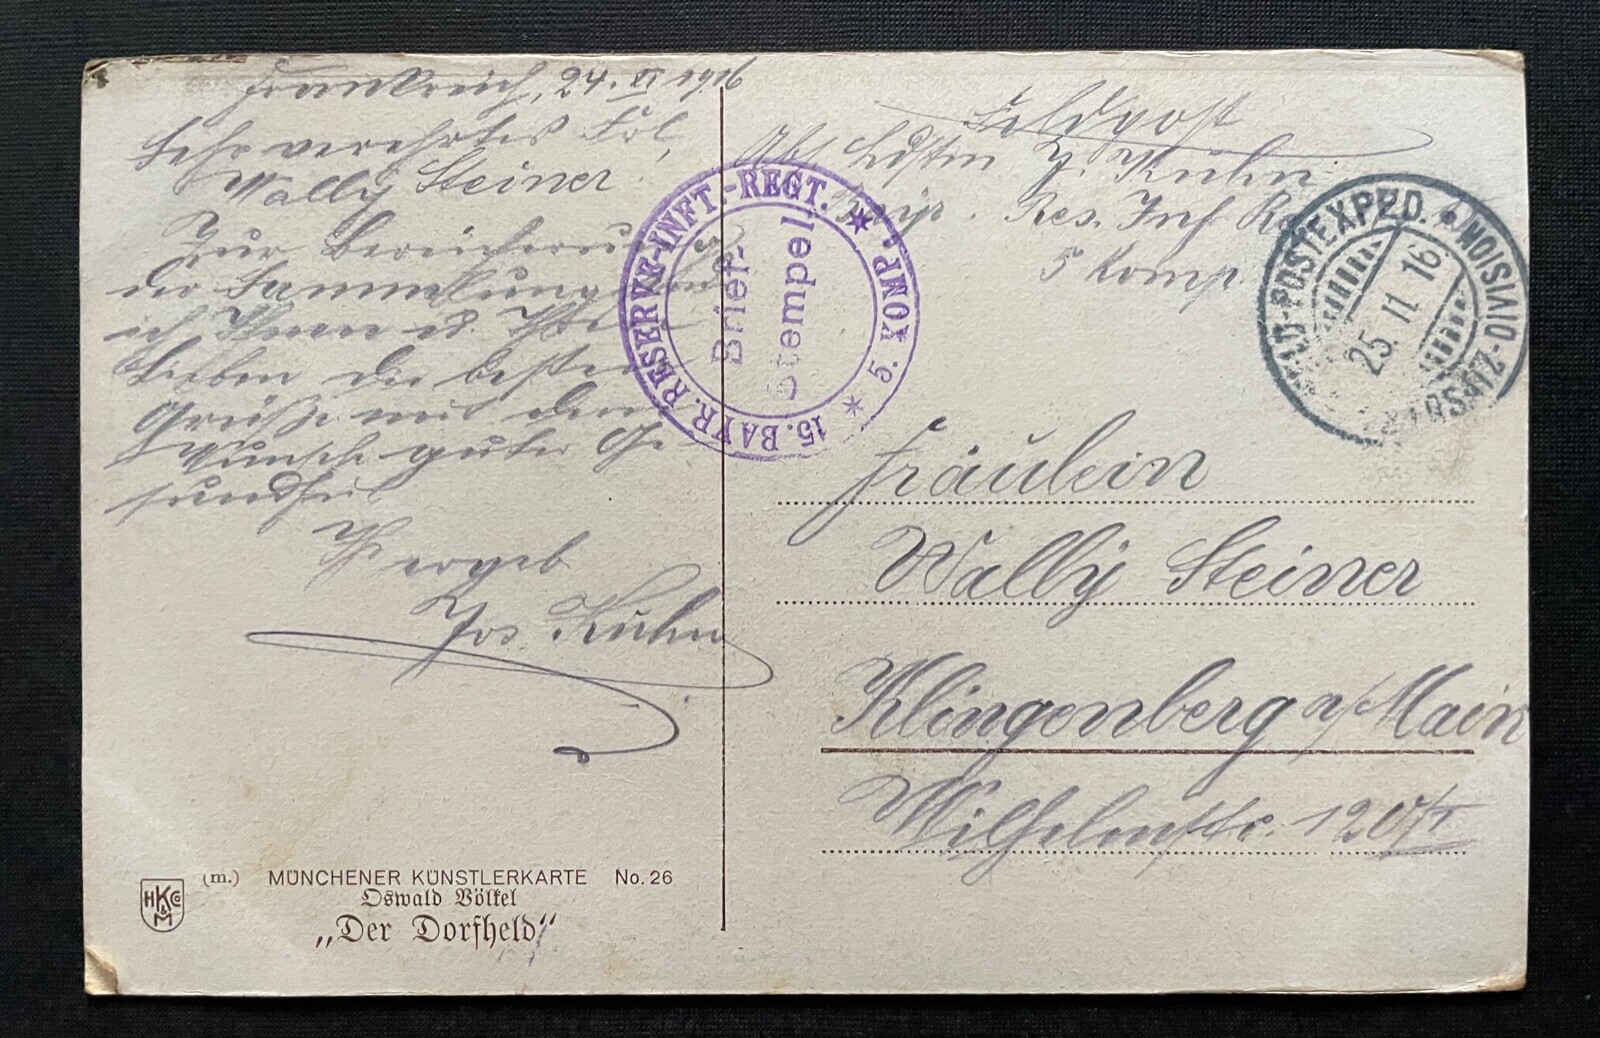 Frankreich, 24. XI 1916
Sehr verehrtes Frl,
Wally Steiner!
Zur Bereicherung
der Sammlung
ich Ihnen u. Ihre
Lieben die besten
Grüße mit dem
Wunsche guter Ge
sundheit
Ihr ergeb
Jos Kuhn
Feldpost
Abs Ldstm J. Kuhn
Bayr. Res. Inf Re
5 Komp
15. BAYR. RESERVE-INFT.-REGT. * 5. KOMP. *
Brief-
Stempel
FELD-POSTEXPED. D.
DIVISION
ERSATZ-
25. 11. 16
Fräulein
Wally Steiner
Klingenberg a/Main
Wilhelmstr. 120
(m.) MÜNCHENER KÜNSTLERKARTE No. 26
Oswald Völkel
„Der Dorfheld“
HK&Co
M